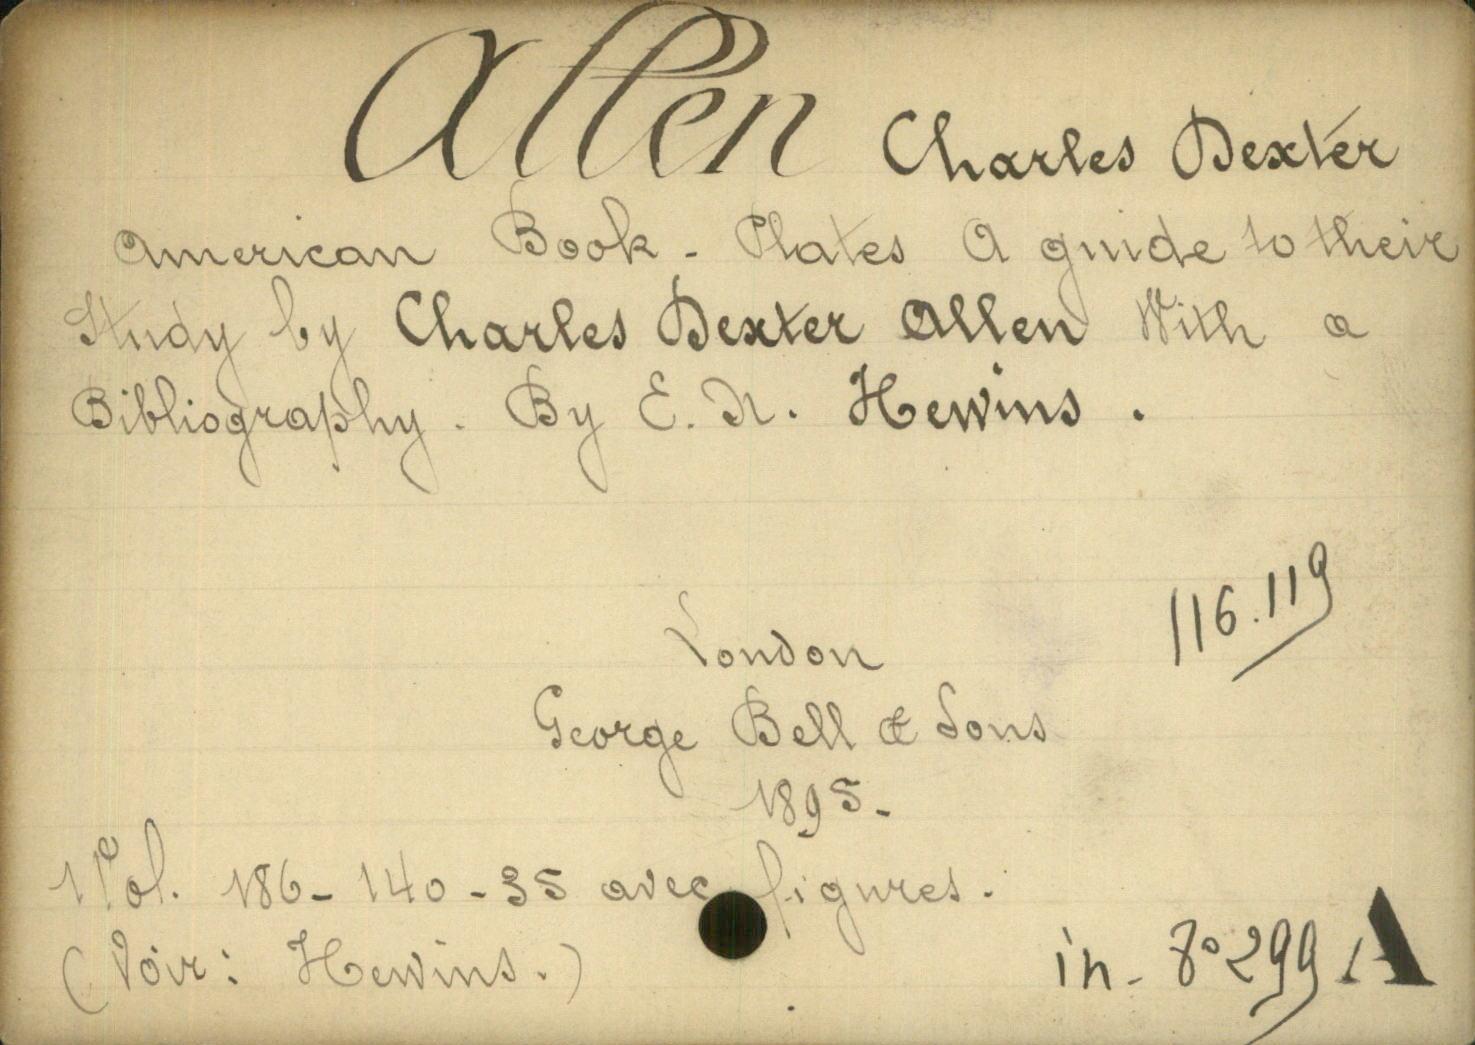 Allen Charles Dexter
American Book - Plates A guide to their
Study by Charles Dexter Allen With a
Bibliography. By E. N. Hewins.
116.119
London
George Bell & Sons
1895-
1 Vol. 186- 140 - 35 avec figures.
(Voir: Hewins.)
in- 8° 299 A